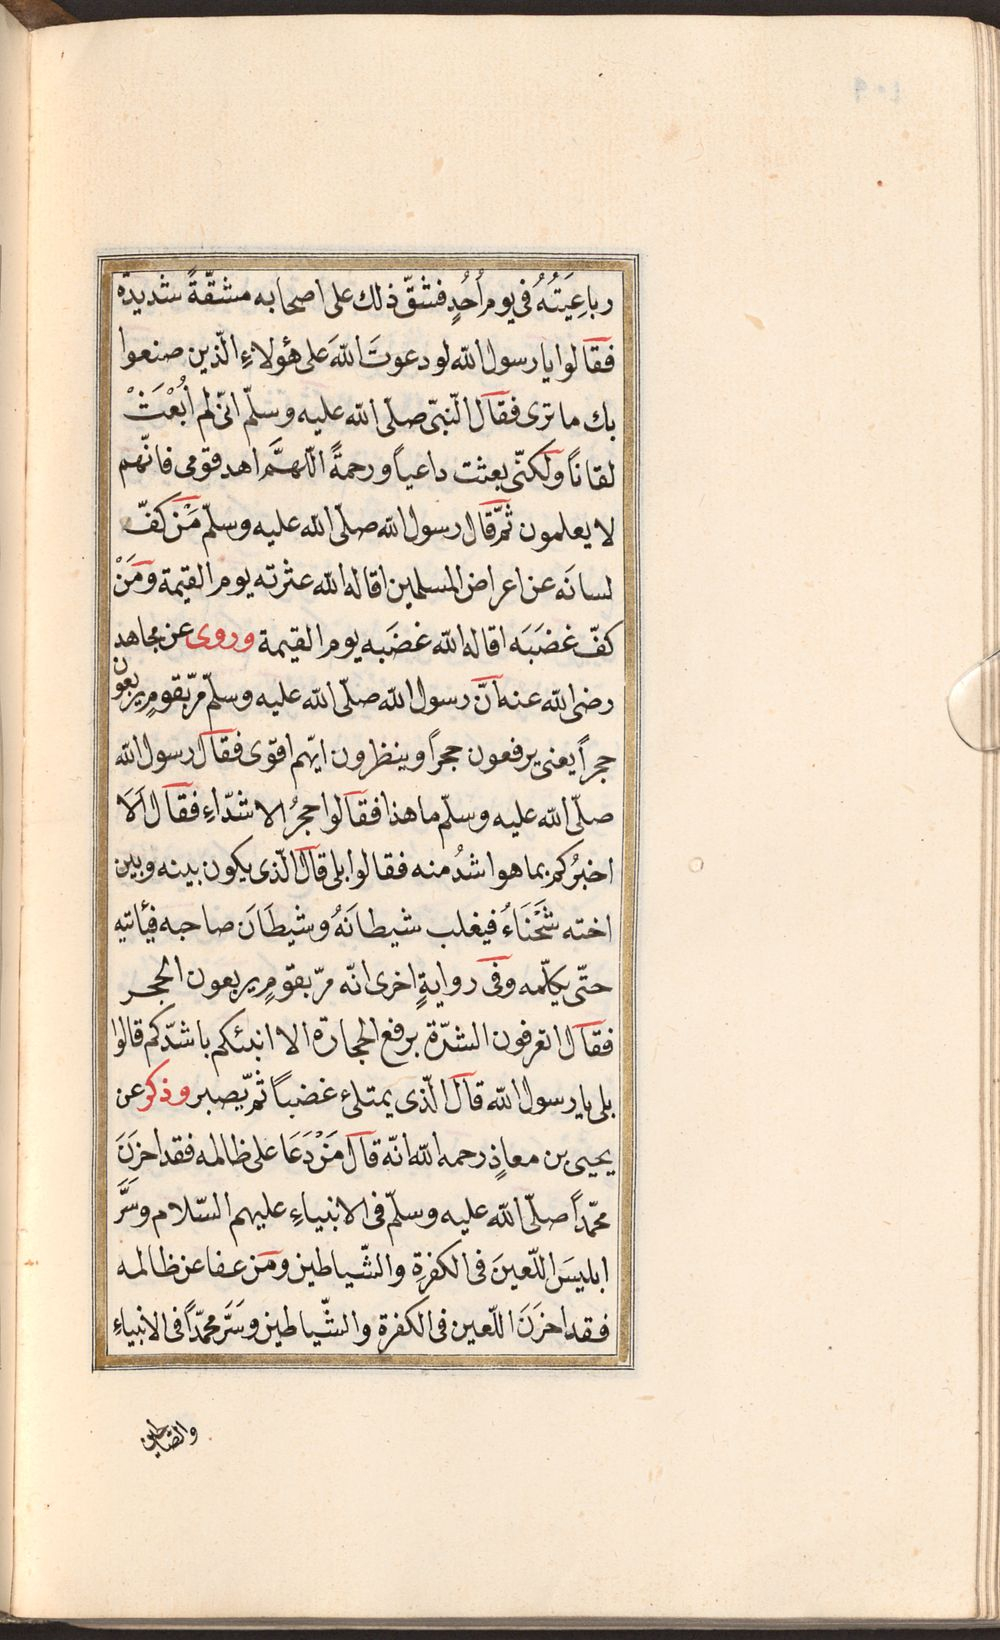 رباعِيَتُهُ فى يوم اُحُدٍ فشقّ ذلك على اصحابه مشقّةً شديدة
فقالوا يا رسول الله لو دعوتَ اللهَ على هٰؤلاءِ الّذين صنعوا
بك ما ترى فقال النّبىّ صلّى الله عليه وسلّم انّى لم اُبْعَثْ
لقاناً ولكنّى بعثت داعياً ورحمةً اللّهمّ اهد قومى فانّهم
لا يعلمون ثمّ قال رسول الله صلّى الله عليه وسلّم مَنْ كفّ
لسانَه عن اعراض المسلمين اقاله الله عثرته يوم القيمة ومَنْ
كفّ غضَبَه اقاله الله غضَبه يوم القيمة وروى عن مجاهد
رضى الله عنه انّ رسول الله صلّى الله عليه وسلّم مرّ بقومٍ يربعون
حجراً يعنى يرفعون حجراً وينظرون ايّهم اقوى فقال رسول الله
صلّى الله عليه وسلّم ما هذا فقالوا حجرُ الاشدّاءِ فقال اَلَا
اخبرُكم بما هو اشدُ منه فقالوا بلى قال الّذى يكون بينه وبين
اخته شَحْنَاءُ فيغلب شيطانَهُ وشيطَانَ صاحبه فيأتيه
حتّى يكلّمه وفى روايةٍ اخرى انّه مرّ بقومٍ يربعون الحجر
فقال اتعرفون الشدّة برفع الحجارة الا انبئكم باشدّكم قالوا
بلى يا رسول الله قال الّذى يمتلىء غضباً ثمّ يصبر وذكر عن
يحيى بن معاذٍ رحمه الله انّه قال مَنْ دَعَا على ظالمه فقد احزَنَ
محمّداً صلّى الله عليه وسلّم فى الانبياءِ عليهم السّلام وسَرَّ
ابليسَ اللّعينَ فى الكفرةِ والشّياطين ومَن عفا عن ظالمه
فقد احزَنَ اللّعين فى الكفرة والشّياطين وسَرَّ محمّداً فى الانبياءِ
والصّالحين